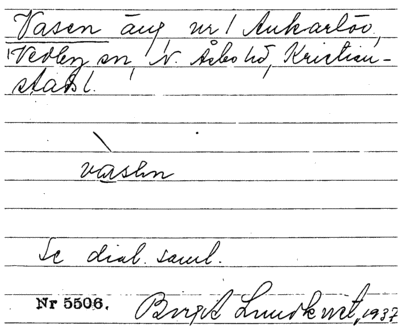 Vasen äng, nr 1 Ankarlöv,
Vedby sn, N. Åsbo hd, Kristian-
stads l.
Se dial. saml.
Nr 5506. Birgit Lundkvist, 1937